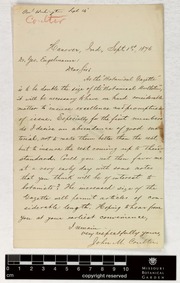 Coulter
Hanover, Ind., Sept. 1st, 1876
Dr. Geo. Engelmann
Dear Sir
As the "Botanical Gazette"
is to be double the size of the Botanical Bulletin,
it will be necessary to have on hand considerable
matter to ensure excellence and promptness
of issue. Especially for the first numbers
do I desire an abundance of good ma-
terial, not to make them better than the rest,
but to insure the rest coming up to their
standard. Could you not then favor me
at a very early day with some notes
that you think will be of interest to
botanists? The increased size of the
Gazette will permit articles of con-
siderable length. Hoping to hear from
you at your earliest convenience,
I remain
very respectfully yours,
John M. Coulter
MISSOURI
BOTANICAL
GARDEN